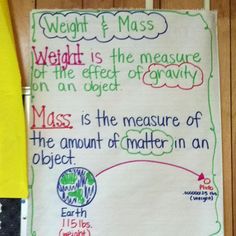 Weight & Mass
Weight is the measure
of the effect of gravity
on an object.
Mass is the measure of
the amount of matter in an
object.
Pluto
lbs.
(weight)
Earth
115 lbs.
(weight)